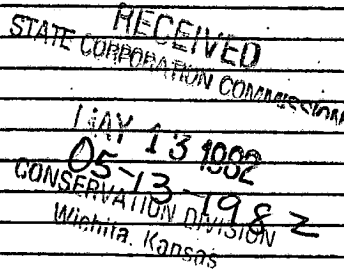 RECEIVED
STATE CORPORATION COMMISSION
MAY 13 1982
05-13-1982
CONSERVATION DIVISION
Wichita, Kansas